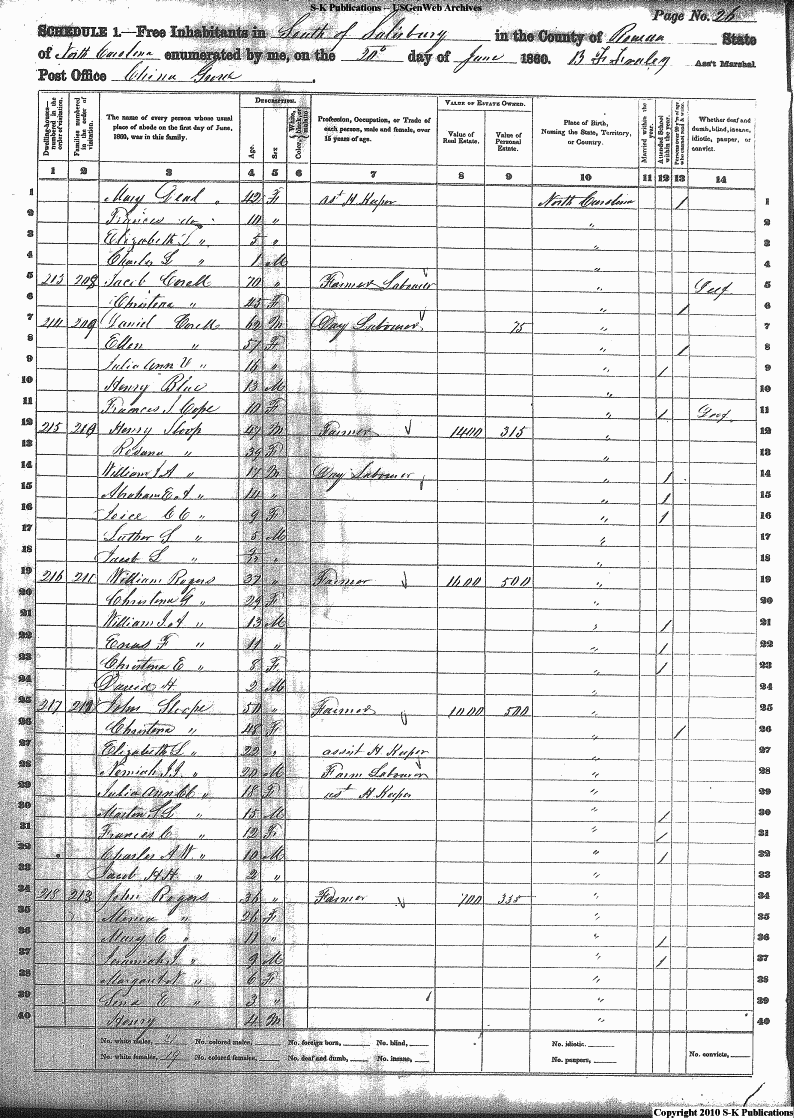 S-K Publications – USGenWeb Archives
Page No. 26
SCHEDULE 1.—Free Inhabitants in South of Salisbury in the County of Rowan State
of North Carolina enumerated by me, on the 20th day of June 1860. Ass't Marshal
Post Office China Grove
Dwelling-houses—numbered in the order of visitation. Families numbered in the order of visitation. The name of every person whose usual place of abode on the first day of June, 1860, was in this family. DESCRIPTION. Age. Sex. Color, Profession, Occupation, or Trade of each person, male and female, over 15 years of age. VALUE OF ESTATE OWNED. Value of Real Estate. Value of Personal Estate. Place of Birth, Naming the State, Territory, or Country. Married within the year. Attended School within the year. Whether deaf and dumb, blind, insane, idiotic, pauper, or convict.
1 2 3 4 5 6 7 8 9 10 11 12 13 14
1 Mary 42 F ast H Keeper North Carolina / 1
2 Frances 10 " " 2
3 Elizabeth " 5 " " 3
4 Charles " 1 M " 4
5 213 208 Jacob Corell 70 " Farmer Labourer " Deef 5
6 Christena " 43 F " / 6
7 214 209 Daniel Corell 62 M Day Labourer 75 " 7
8 Ellen " 57 F " / 8
9 Julia Ann " 16 " " / 9
10 Henry Blue 13 M " 10
11 Frances J Cope 10 F " / Deef 11
12 215 210 Henry Sloop 47 M Farmer 1400 315 " 12
13 Rosana " 39 F " 13
14 William J A " 17 M Day Labourer " / 14
15 Abraham E A " " " / 15
16 Joice C C " 9 F " / 16
17 Luther S " 5 M " 17
18 Jacob S " " " 18
19 216 211 William Rogers 37 " Farmer 1600 500 " 19
20 Christena " 29 F " 20
21 William " 13 M " / 21
22 F " 11 " " / 22
23 Christena E " 8 F " / 23
24 David H 2 M " 24
25 217 212 John Sloope 50 " Farmer 1000 500 " 25
26 Christena " 48 F " / 26
27 Elizabeth S " 22 " assist H Keeper " 27
28 Nemiah J. J. " 20 M Farm Labourer " 28
29 Julia Ann " 18 F ast H Keeper " 29
30 " 15 M " / 30
31 Frances C " 12 F " / 31
32 Charles A W " 10 M " / 32
33 Jacob H. H. " 2 " " 33
34 218 213 John Rogers 36 " Farmer 700 335 " 34
35 " 26 F " 35
36 Mary C " 11 " " / 36
37 Jeremiah J " 9 M " / 37
38 Margaret " 6 F " 38
39 E " 3 " " 39
40 Henry 4 M " 40
No. white males, 21 No. colored males, No. foreign born, No. blind, No. idiotic,
No. white females, 19 No. colored females, No. deaf and dumb, No. insane, No. paupers, No. convicts,
Copyright 2010 S-K Publications